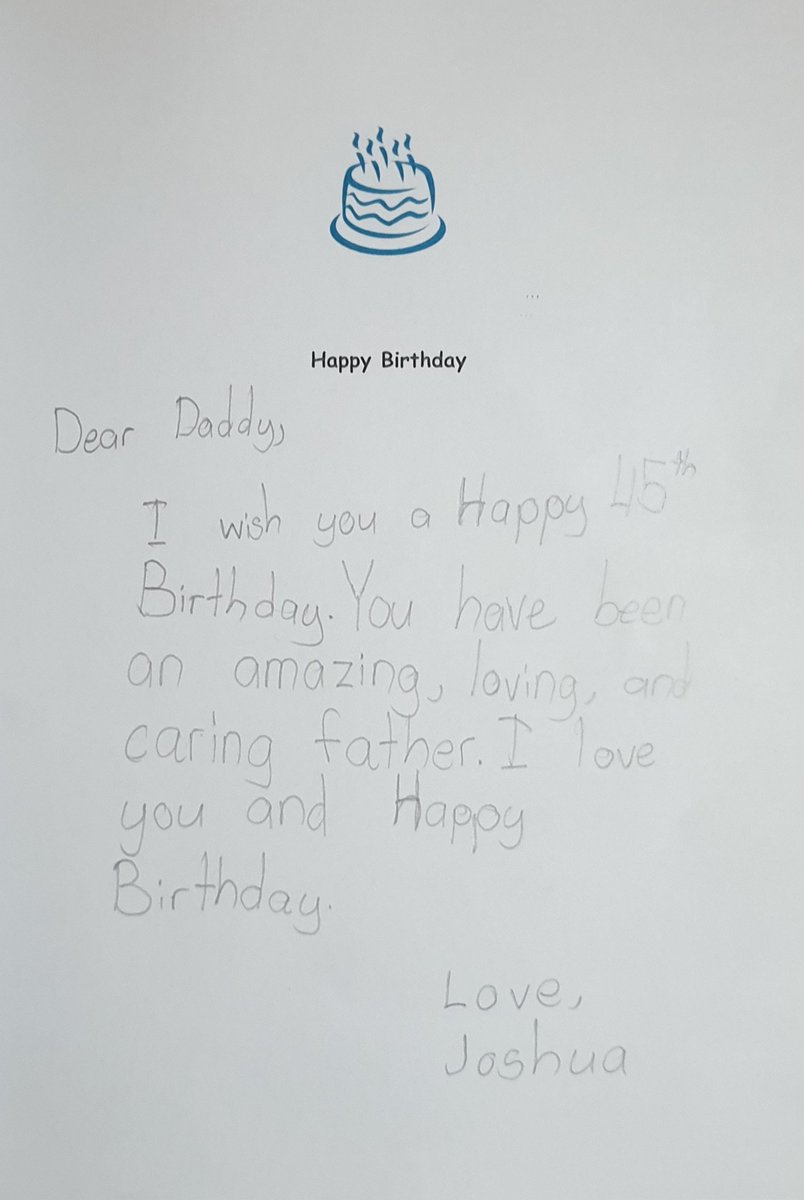 Happy Birthday
Dear Daddy,
I wish you a Happy 45th
Birthday. You have been
an amazing, loving, and
caring father. I love
you and Happy
Birthday.
Love,
Joshua